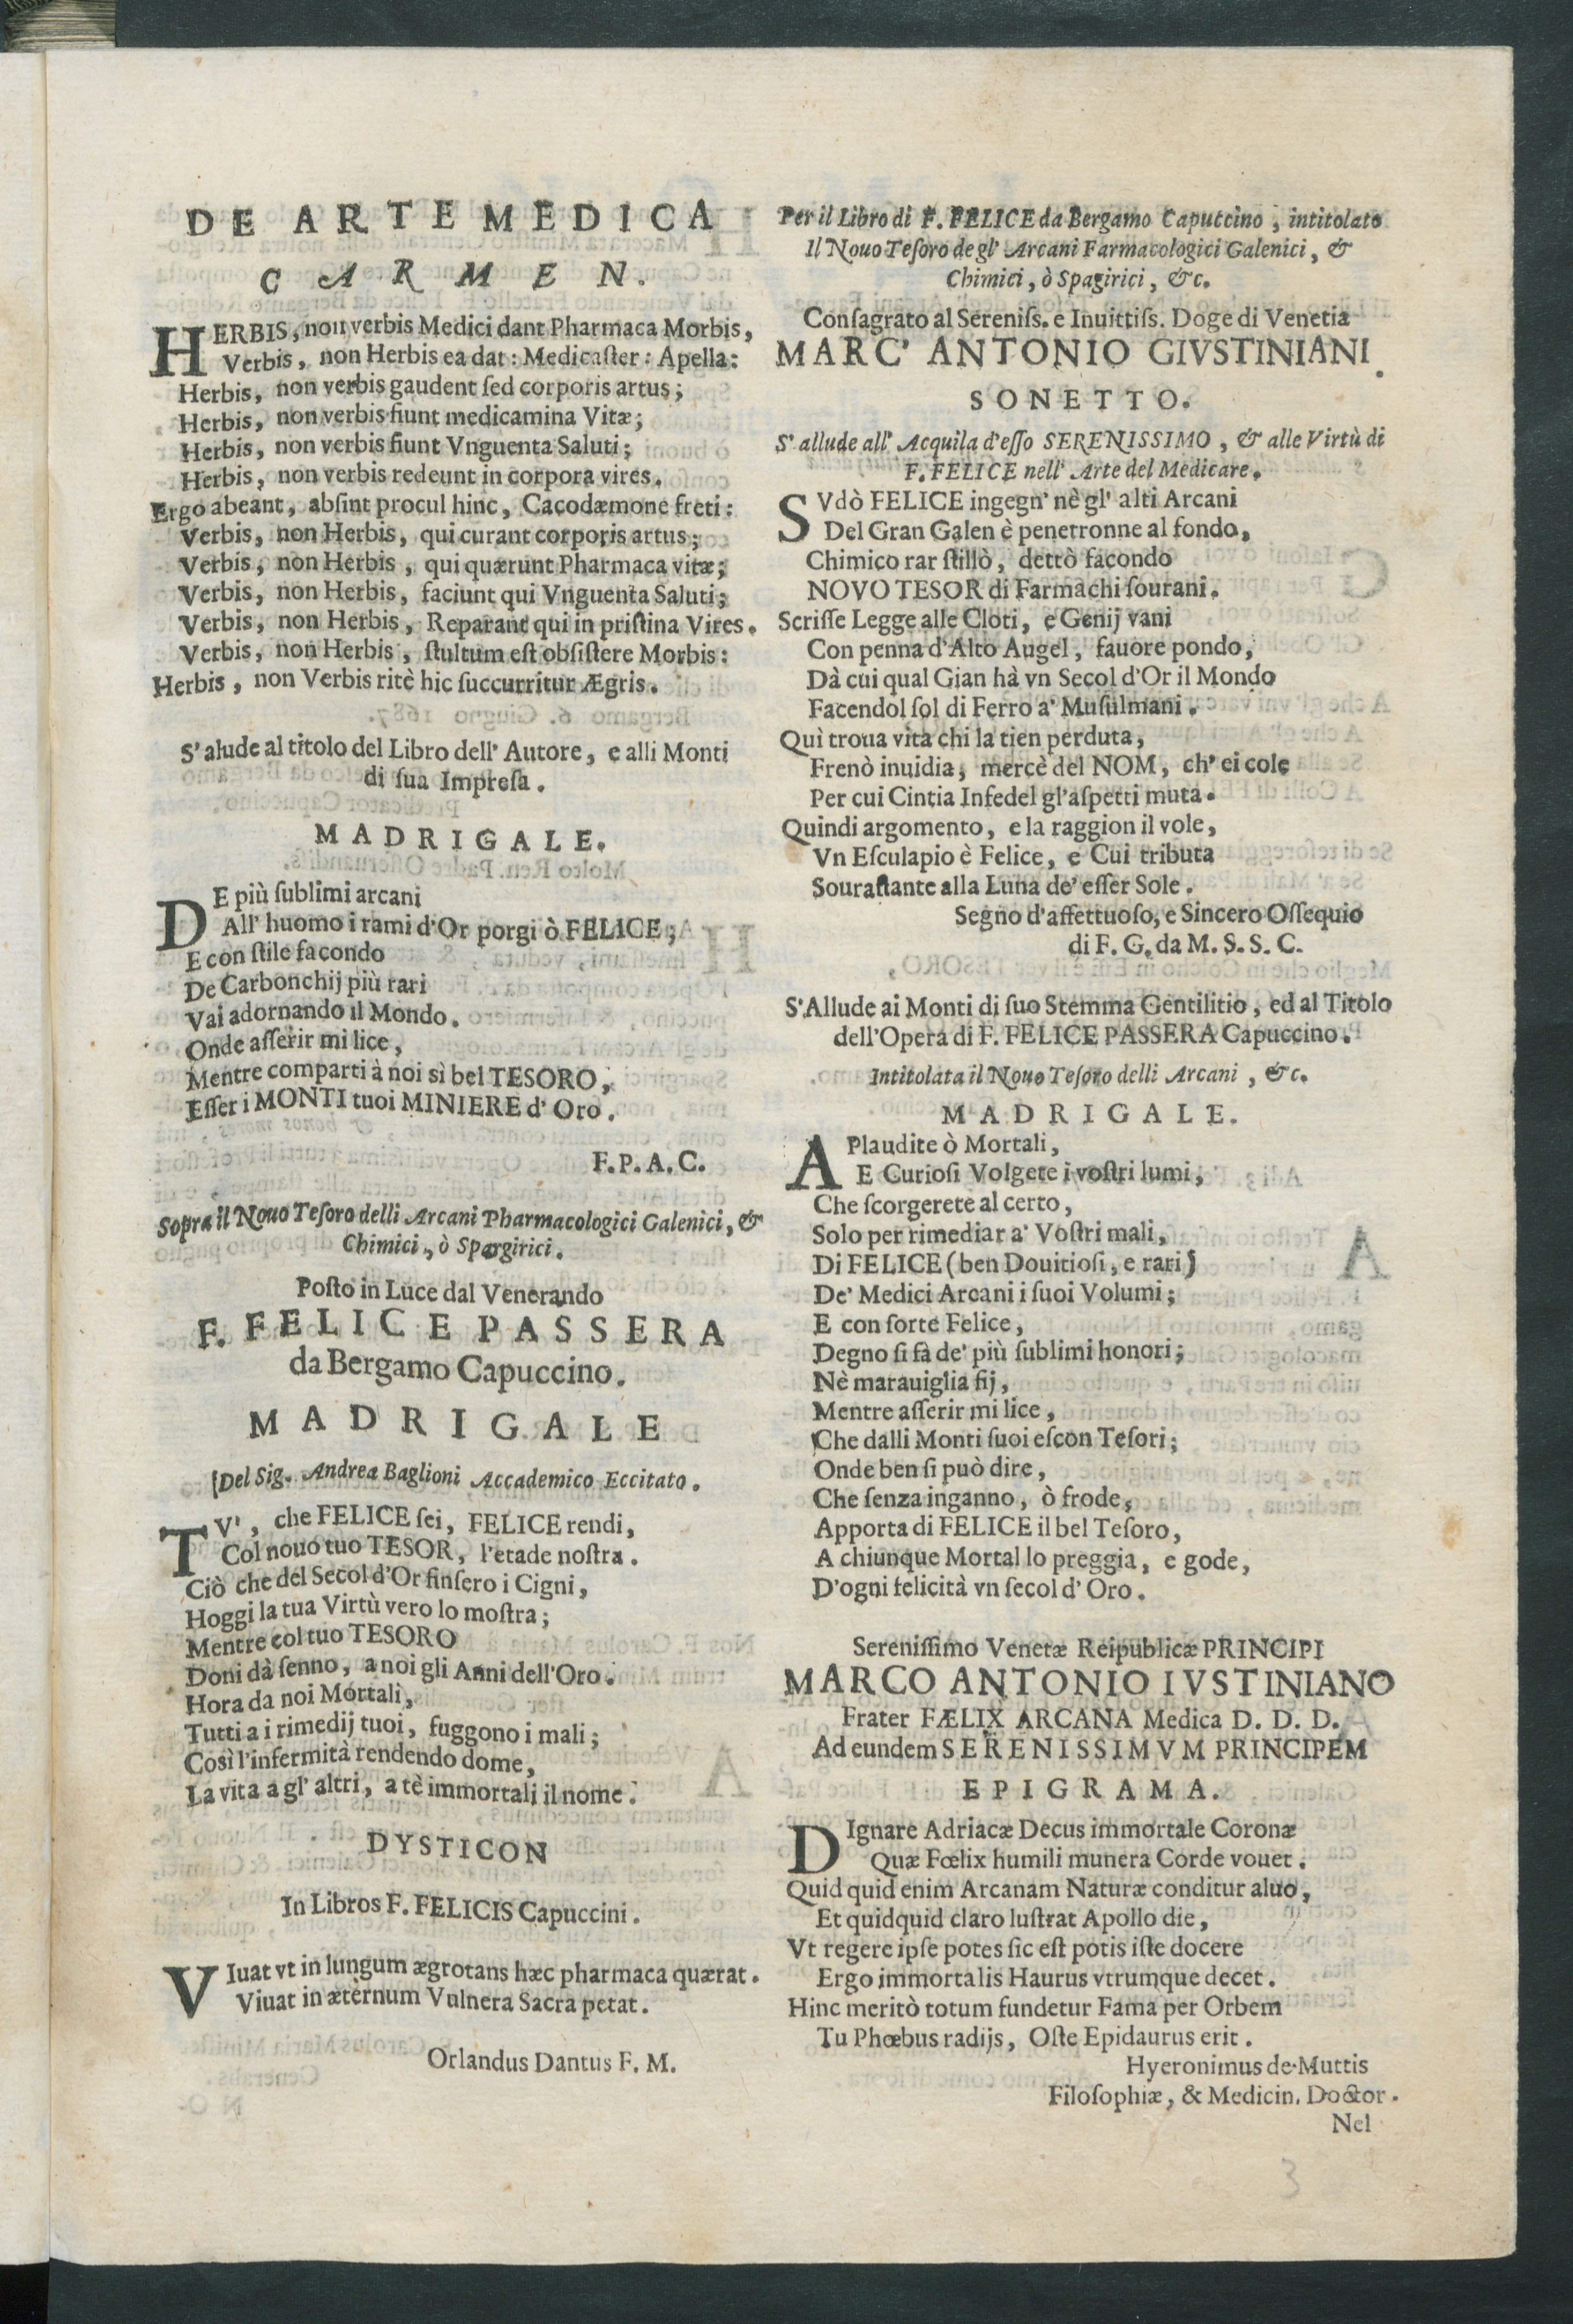 DE ARTE MEDICA
CARMEN.
HERBIS, non verbis Medici dant Pharmaca Morbis,
Verbis, non Herbis ea dat: Medicaſter: Apella:
Herbis, non verbis gaudent ſed corporis artus;
Herbis, non verbis fiunt medicamina Vitæ;
Herbis, non verbis fiunt Vnguenta Saluti;
Herbis, non verbis redeunt in corpora vires.
Ergo abeant, abſint procul hinc, Cacodæmone freti:
Verbis, non Herbis, qui curant corporis artus;
Verbis, non Herbis, qui quærunt Pharmaca vitæ;
Verbis, non Herbis, faciunt qui Vnguenta Saluti;
Verbis, non Herbis, Reparant qui in priſtina Vires.
Verbis, non Herbis, ſtultum eſt obſiſtere Morbis:
Herbis, non Verbis ritè hic ſuccurritur Ægris.
S'alude al titolo del Libro dell' Autore, e alli Monti
di ſua Impreſa.
MADRIGALE.
DE più ſublimi arcani
All' huomo i rami d'Or porgi ò FELICE;
E con ſtile facondo
De Carbonchij più rari
Vai adornando il Mondo.
Onde aſſerir mi lice,
Mentre comparti à noi sì bel TESORO,
Eſſer i MONTI tuoi MINIERE d' Oro.
F. P. A. C.
Sopra il Nouo Teſoro delli Arcani Pharmacologici Galenici, &
Chimici, ò Spargirici.
Poſto in Luce dal Venerando
F. FELICE PASSERA
da Bergamo Capuccino.
MADRIGALE
Del Sig. Andrea Baglioni Accademico Eccitato.
TV', che FELICE ſei, FELICE rendi,
Col nouo tuo TESOR, l'etade noſtra.
Ciò che del Secol d'Or finſero i Cigni,
Hoggi la tua Virtù vero lo moſtra;
Mentre col tuo TESORO
Doni dà ſenno, a noi gli Anni dell'Oro.
Hora da noi Mortali,
Tutti a i rimedij tuoi, fuggono i mali;
Così l'infermità rendendo dome,
La vita a gl' altri, a tè immortali il nome.
DYSTICON
In Libros F. FELICIS Capuccini.
VIuat vt in lungum ægrotans hæc pharmaca quærat.
Viuat in æternum Vulnera Sacra petat.
Orlandus Dantus F. M.
Per il Libro di F. FELICE da Bergamo Capuccino, intitolato
Il Nouo Teſoro degl' Arcani Farmacologici Galenici, &
Chimici, ò Spagirici, &c.
Conſagrato al Sereniſs. e Inuittiſs. Doge di Venetia
MARC' ANTONIO GIVSTINIANI.
SONETTO.
S'allude all' Acquila d'eſſo SERENISSIMO, & alle Virtù di
F. FELICE nell' Arte del Medicare.
SVdò FELICE ingegn' nè gl' alti Arcani
Del Gran Galen è penetronne al fondo,
Chimico rar ſtillò, dettò facondo
NOVO TESOR di Farmachi ſourani.
Scriſſe Legge alle Cloti, e Genij vani
Con penna d'Alto Augel, fauore pondo,
Dà cui qual Gian hà vn Secol d'Or il Mondo
Facendol ſol di Ferro a' Muſulmani.
Quì troua vita chi la tien perduta,
Frenò inuidia, mercè del NOM, ch' ei cole
Per cui Cintia Infedel gl'aſpetti muta.
Quindi argomento, e la raggion il vole,
Vn Eſculapio è Felice, e Cui tributa
Souraſtante alla Luna de' eſſer Sole.
Segno d'affettuoſo, e Sincero Oſſequio
di F. G. da M. S. S. C.
S'Allude ai Monti di ſuo Stemma Gentilitio, ed al Titolo
dell'Opera di F. FELICE PASSERA Capuccino.
Intitolata il Nouo Teſoro delli Arcani, &c.
MADRIGALE.
APlaudite ò Mortali,
E Curioſi Volgete i voſtri lumi,
Che ſcorgerete al certo,
Solo per rimediar a' Voſtri mali,
Di FELICE (ben Douitioſi, e rari)
De' Medici Arcani i ſuoi Volumi;
E con ſorte Felice,
Degno ſi fà de' più ſublimi honori;
Nè marauiglia ſij,
Mentre aſſerir mi lice,
Che dalli Monti ſuoi eſcon Teſori;
Onde ben ſi può dire,
Che ſenza inganno, ò frode,
Apporta di FELICE il bel Teſoro,
A chiunque Mortal lo preggia, e gode,
D'ogni felicità vn ſecol d' Oro.
Sereniſſimo Venetæ Reipublicæ PRINCIPI
MARCO ANTONIO IVSTINIANO
Frater FÆLIX ARCANA Medica D. D. D.
Ad eundem SERENISSIMVM PRINCIPEM
EPIGRAMA.
DIgnare Adriacæ Decus immortale Coronæ
Quæ Fœlix humili munera Corde vouet.
Quid quid enim Arcanam Naturæ conditur aluo,
Et quidquid claro luſtrat Apollo die,
Vt regere ipſe potes ſic eſt potis iſte docere
Ergo immortalis Haurus vtrumque decet.
Hinc meritò totum fundetur Fama per Orbem
Tu Phœbus radijs, Oſte Epidaurus erit.
Hyeronimus de Muttis
Filoſophiæ, & Medicin. Doctor.
Nel
3